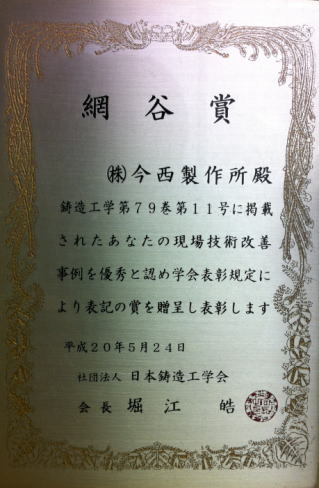 網谷賞
㈱今西製作所殿
鋳造工学第79巻第11号に掲載
されたあなたの現場技術改善
事例を優秀と認め学会表彰規定に
より表記の賞を贈呈し表彰します
平成20年5月24日
社団法人 日本鋳造工学会
会長 堀江 皓